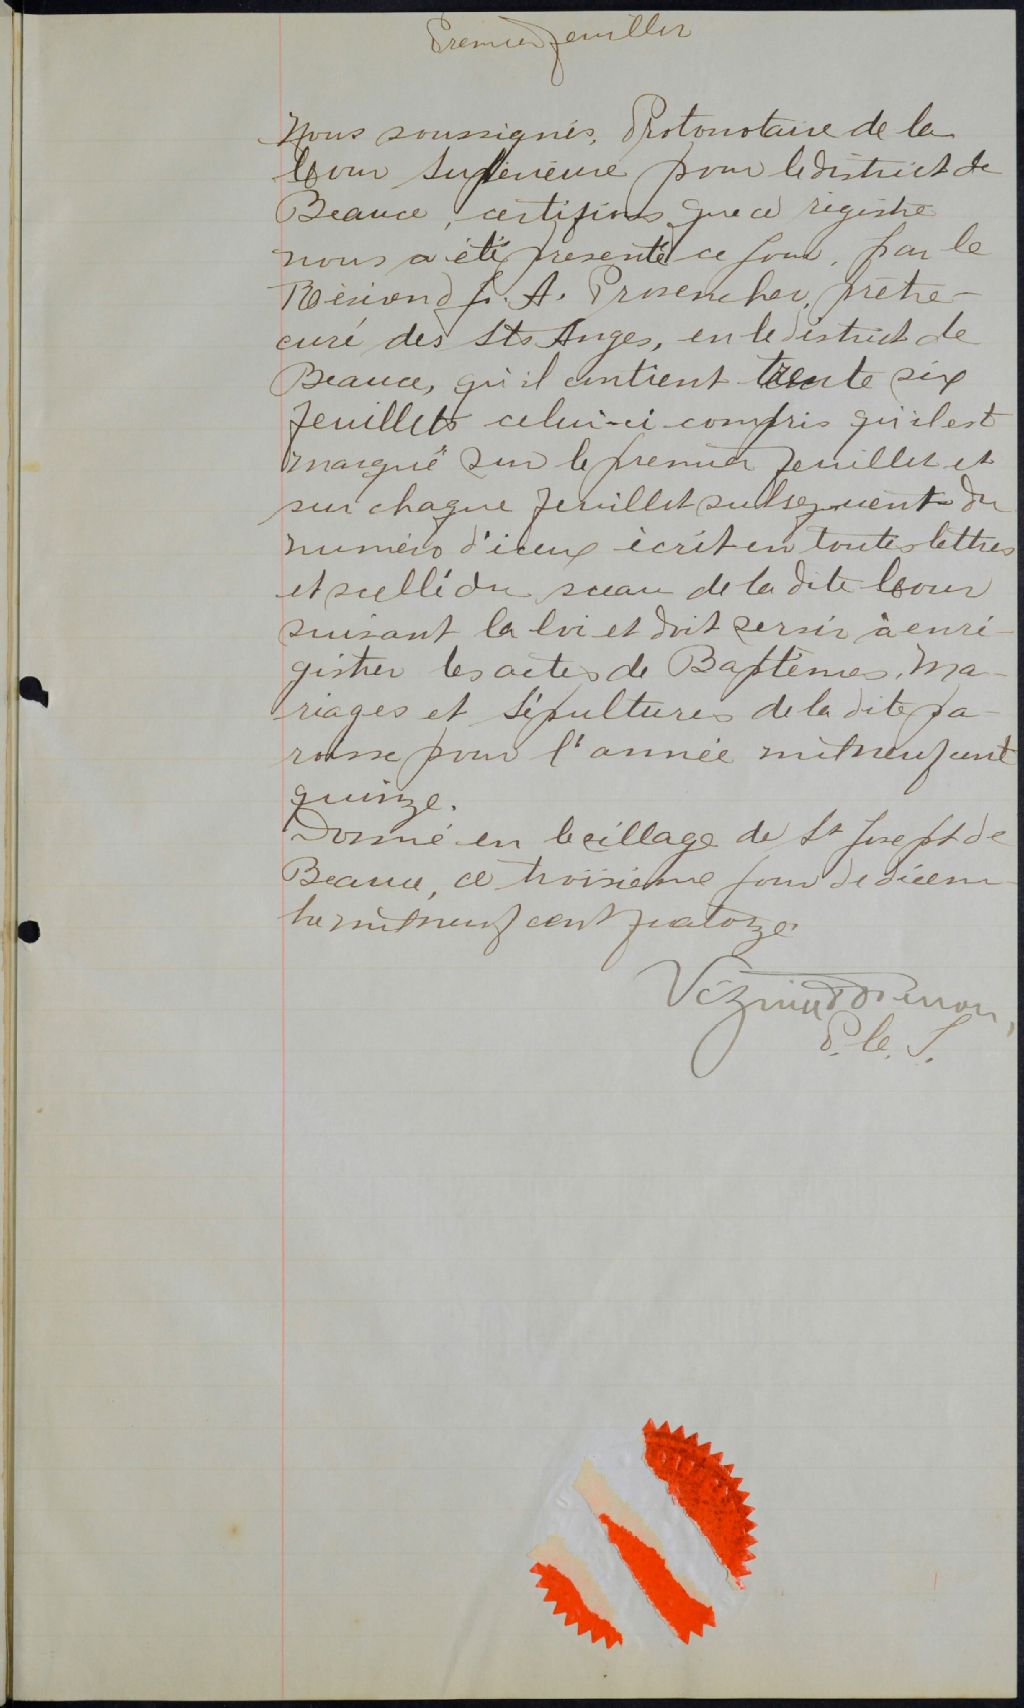 Premier feuillet
Nous soussignés, Protonotaire de la
Cour Supérieure pour le district de
Beauce, certifions que ce régistre
nous a été présenté ce jour, par le
Révérend J. A. Provencher, prêtre-
curé des Sts Anges, en le district de
Beauce, qu'il contient trente six
feuillets celui-ci compris qu'il est
marqué sur le premier feuillet et
sur chaque feuillet subsequent du
numéro d'iceux écrit en toutes lettres
et scellé du sceau de la dite Cour
suivant la loi et doit servir à enré-
gistrer les actes de Baptêmes, Ma-
riages et Sépultures de la dite pa-
roisse pour l'année mil neuf cent
quinze.
Donné en le village de St Joseph de
Beauce, ce troisième jour de décem-
bre mil neuf cent quatorze.
Vézina
P. C. S.